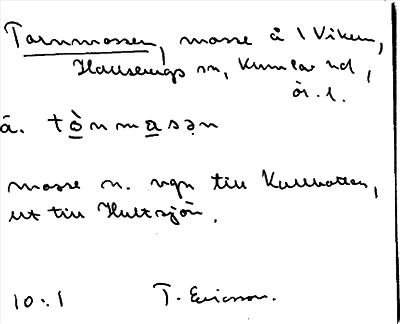 Tarnmossen, mosse å 1 Viken,
Hallsbergs sn, Kumla hd,
ör. l.
ā. tònmasən
mosse n. vgn till Kallbotten,
ut till Hultsjön.
10:1 T. Ericsson.